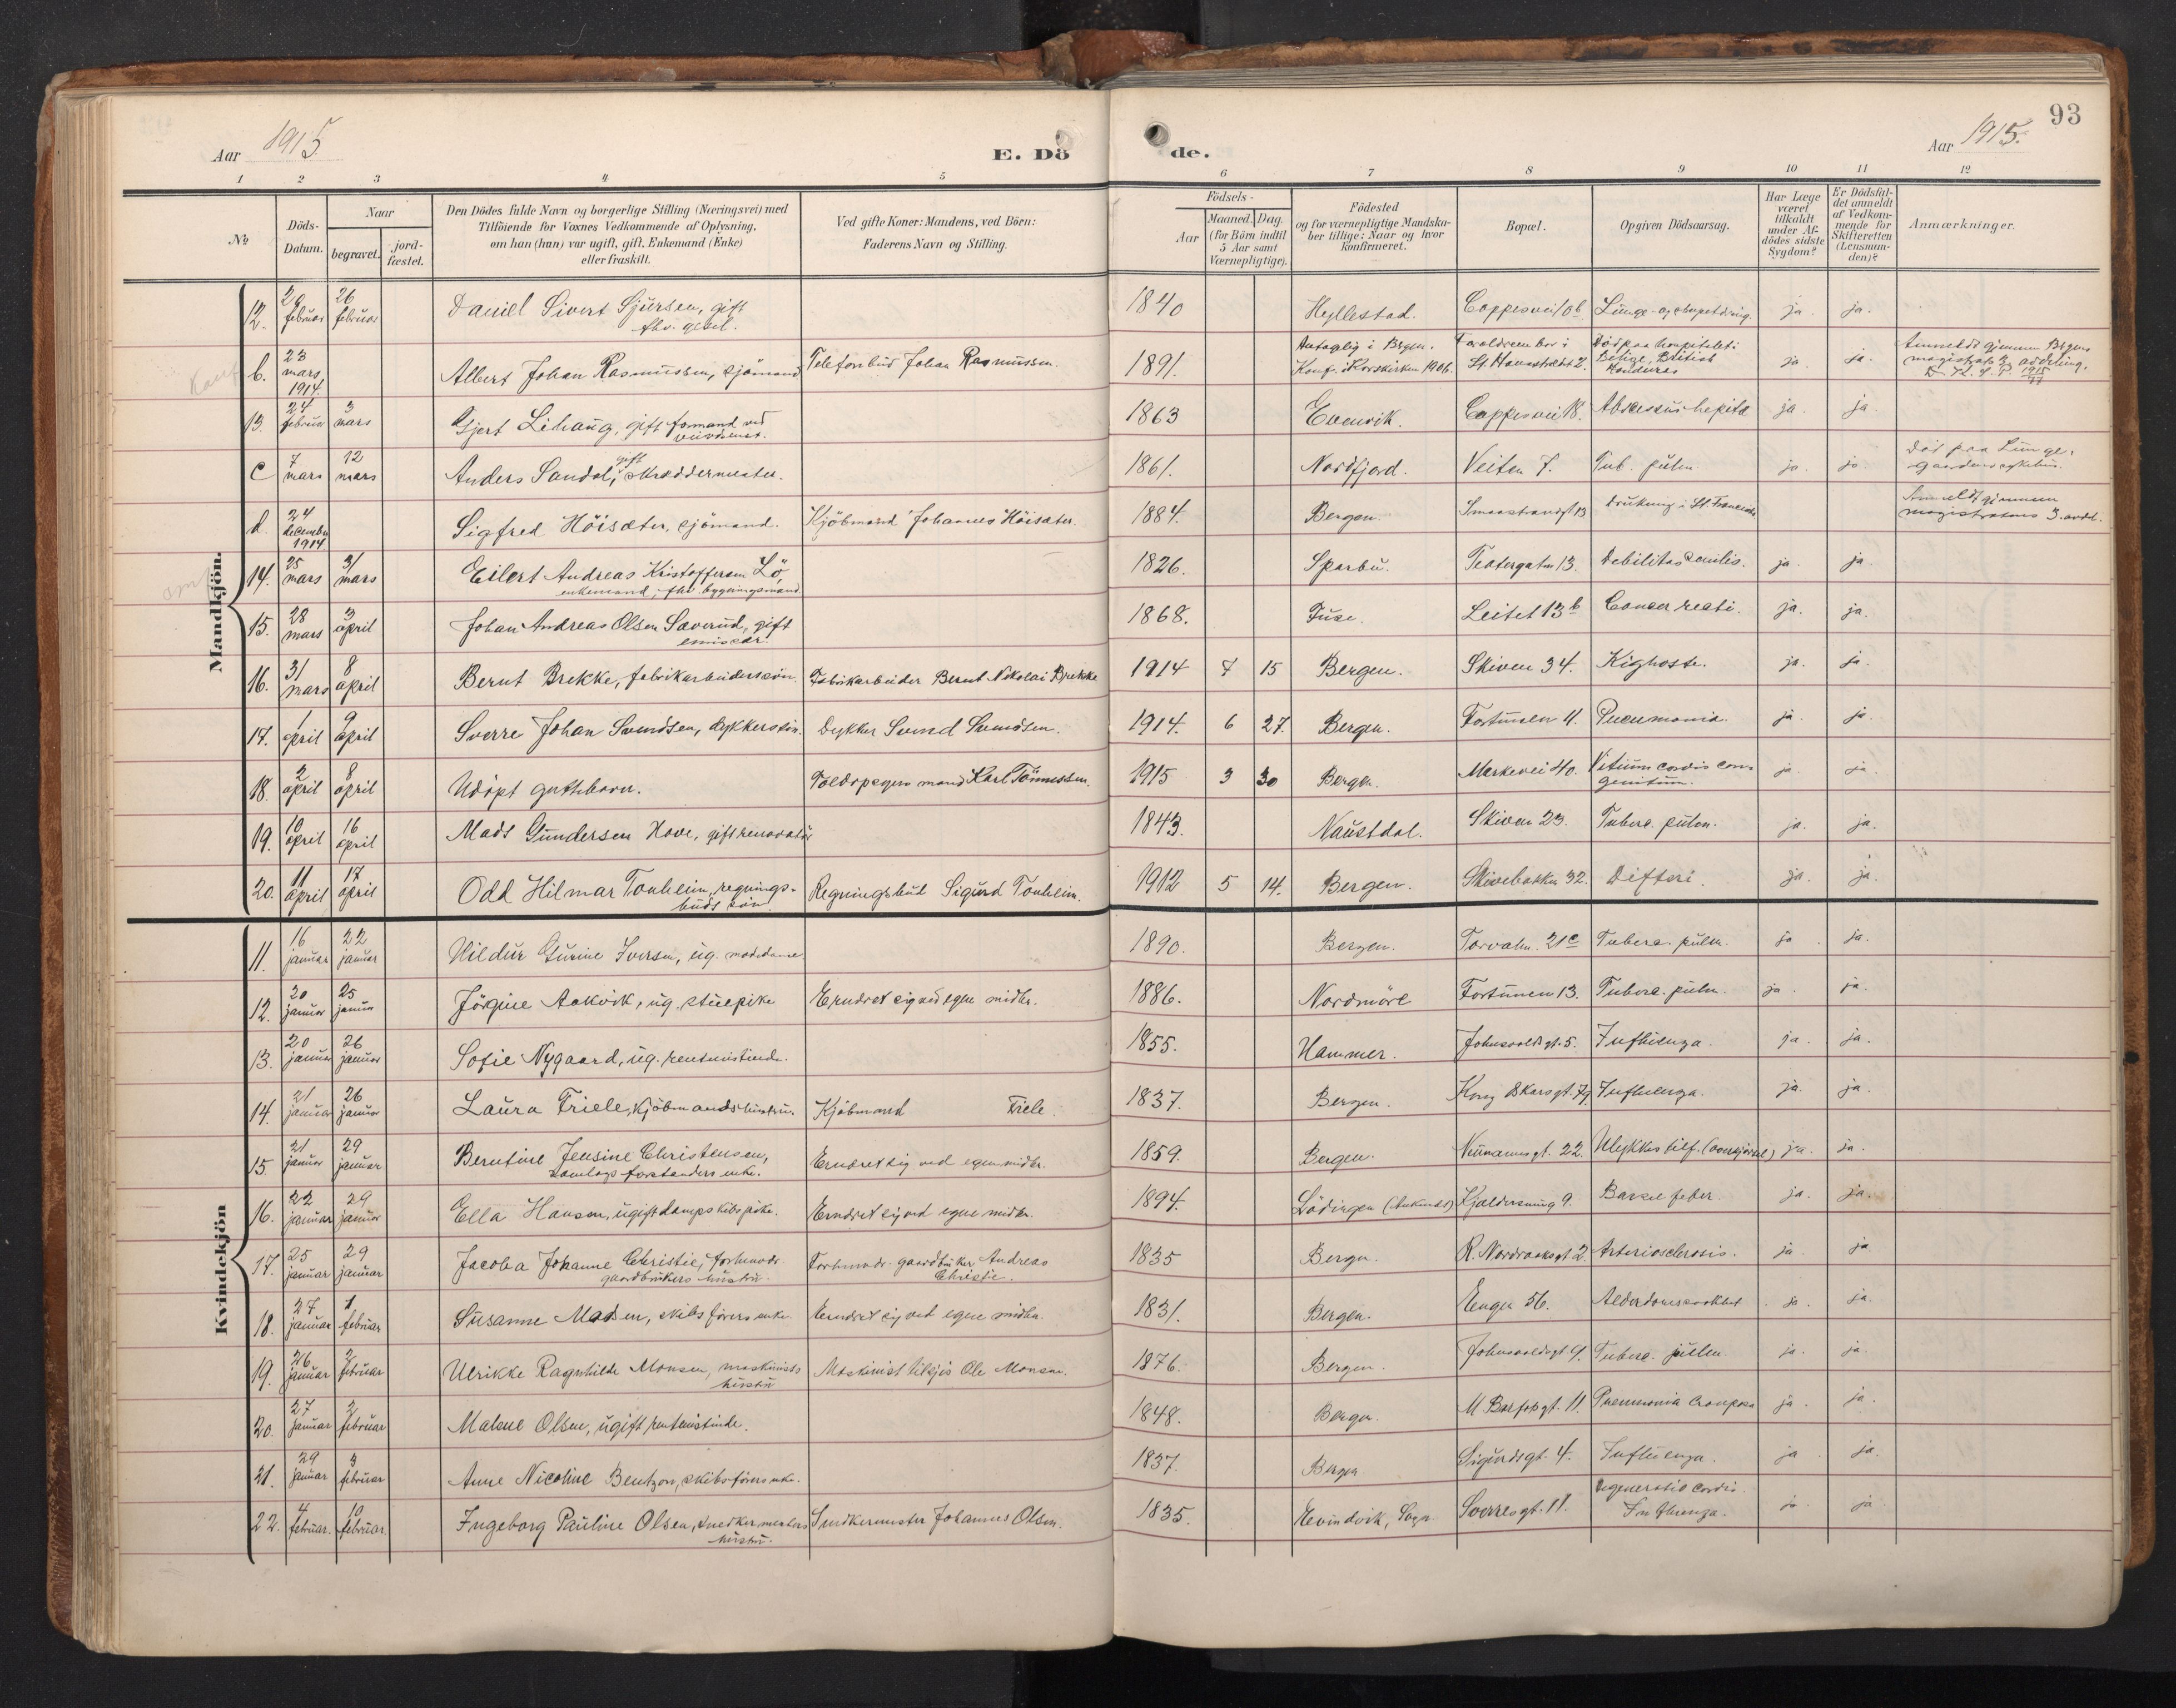 93
Aar 1915
E. Döde.
Aar 1915.
1 2 3 4 5 6 7 8 9 10 11 12
No
Döds-Datum.
Naar
begravet.
jord-fæstet.
Den Dödes fulde Navn og borgerlige Stilling (Næringsvei) med
Tilföiende for Voxnes Vedkommende af Oplysning,
om han (hun) var ugift, gift, Enkemand (Enke)
eller fraskilt.
Ved gifte Koner: Mandens, ved Börn:
Faderens Navn og Stilling.
Aar
Födsels-
Maaned. Dag.
(for Börn indtil
5 Aar samt
Værnepligtige).
Födested
og for værnepligtige Mandska-
ber tillige: Naar og hvor
konfirmeret.
Bopæl.
Opgiven Dödsaarsag.
Har Læge
været
tilkaldt
under Af-
dödes sidste
Sygdom?
Er Dödsfal-
det anmeldt
af Vedkom-
mende for
Skifteretten
(Lensman-
den)?
Anmærkninger.
Mandkjön.
12. februar 26 februar Daniel Sivert Sjursen, gift
1840 Hyllestad. ja. ja.
b. 23 mars 1914. Albert Johan Rasmussen, sjömand Telefonbud Johan Rasmussen.
1891. Antagelig i Bergen. Konf. i Korskirken 1906. Foreldrene bor i St. Hansstrædet 2. Död paa hospitalet i Belize, British Honduras ja ja. Anmeldt gjennem Bergens magistrats 3 avdeling.
13. 24 februar 3 mars Gjert Lihaug, gift formand ved
1863 Evenvik. ja. ja.
c 7 mars 12 mars Anders Sandal, gift skræddermester.
1861. Nordfjord. Veiten 7. Tub. pulm. ja ja. Död paa Lunge-
gaardens sykehus.
d. 24 december 1914 Sigfred Höisæter, sjömand. Kjöbmand Johannes Höisæter.
1884. Bergen. Smaastrandgt 13 drukning i St. Francisco Anmeldt gjennem
magistratens 3. avdel.
14. 25 mars 31 mars Eilert Andreas Kristoffersen Lö,
enkemand, fhv. bygningsmand.
1826. Sparbu. Teatergaten 13. Debilitas senilis. ja. ja.
15. 28 mars 3 april Johan Andreas Olsen Sæverud, gift
emissær.
1868. Fuse. Leitet 13 b Cancer recti. ja. ja.
16. 31 mars 8 april Bernt Brekke, fabrikarbeiders sön. Fabrikarbeider Bernt Nikolai Brekke
1914 7 15 Bergen. Skiven 34. Kighoste. ja. ja.
17. 1 april 9 april Sverre Johan Svendsen, dykkers sön. Dykker Svend Svendsen.
1914. 6 27. Bergen. Fortunen 4. Pneumonia. ja. ja.
18. 2 april 8 april Udöpt guttebarn. Toldopsynsmand Karl Tönnessen.
1915 3 30 Bergen. Markevei 40. Vitium cordis con-
genitum. ja ja.
19. 10 april 16 april Mads Gundersen Hove, gift renovatör
1843. Naustdal. Skiven 23. Tuberc. pulm. ja. ja.
20. 11 april 17 april Odd Hilmar Tonheim, regnings-
buds sön. Regningsbud Sigurd Tonheim.
1912 5 14. Bergen. Skivebakken 32. Difteri. ja. ja.
Kvindekjön
11. 16 januar 22 januar Hildur Gurine Iversen, ug. modedame
1890. Bergen. Torvalm. 21 c Tuberc. pulm. ja. ja.
12. 20 januar 25 januar Jörgine Aakvik, ug. stuepike Ernæret sig ved egne midler.
1886. Nordmöre Fortunen 13. Tuberc. pulm. ja. ja.
13. 20 januar 26 januar Sofie Nygaard, ug. rentenistinde.
1855. Hammer. Johnsvoldsgt. 5. Influenza. ja. ja.
14. 21 januar 26 januar Laura Friele, kjöbmandshustru. Kjöbmand Friele.
1837. Bergen. Kong Oskarsgt. Influenza. ja. ja.
15 21 januar 29 januar Berntine Jensine Christensen,
samlags forstanders enke. Ernæret sig ved egne midler.
1859. Bergen. Neumannsgt. 22. Ulykkestilf. (overkjörsel) ja. ja.
16. 22 januar 29 januar Ella Hansen, ugift dampskibspike. Ernæret sig ved egne midler.
1894. Lödingen 9. Barselfeber. ja. ja.
17. 25 januar 29 januar Jacoba Johanne Christie, forhenv.
gaardbrukers hustru. Forhenv. gaardbruker Andreas
Christie.
1835 Bergen. R. Nordraaksgt 2. Arteriosclerosis. ja ja
18. 27 januar 1 februar Susanne Madsen, skibsförers enke. Ernæret sig ved egne midler.
1831. Bergen. Engen 56. Alderdomssvakhet. ja. ja.
19. 26 januar 2 februar Ulrikke Ragnhilde Monsen, maskinists
hustru Maskinist tilsjös Ole Monsen.
1876. Bergen. Johnsvoldsgt 4. Tuberc. pulm. ja. ja.
20. 27 januar 2 februar Malene Olsen, ugift rentenistinde.
1848. Bergen. M Barfodsgt. 11. Pneumonia crouposa ja. ja.
21. 29 januar 3 februar Anne Nicoline Bentzon, skibsförers enke.
1837. Bergen Sigurdsgt. 4. Influenza. ja ja.
22. 4 februar. 10 februar. Ingeborg Pauline Olsen, snedkermesters
hustru. Snedkermester Johannes Olsen.
1835. Evindvik, Sogn. Sverresgt. 11. Degeneratio cordis.
Influenza. ja. ja